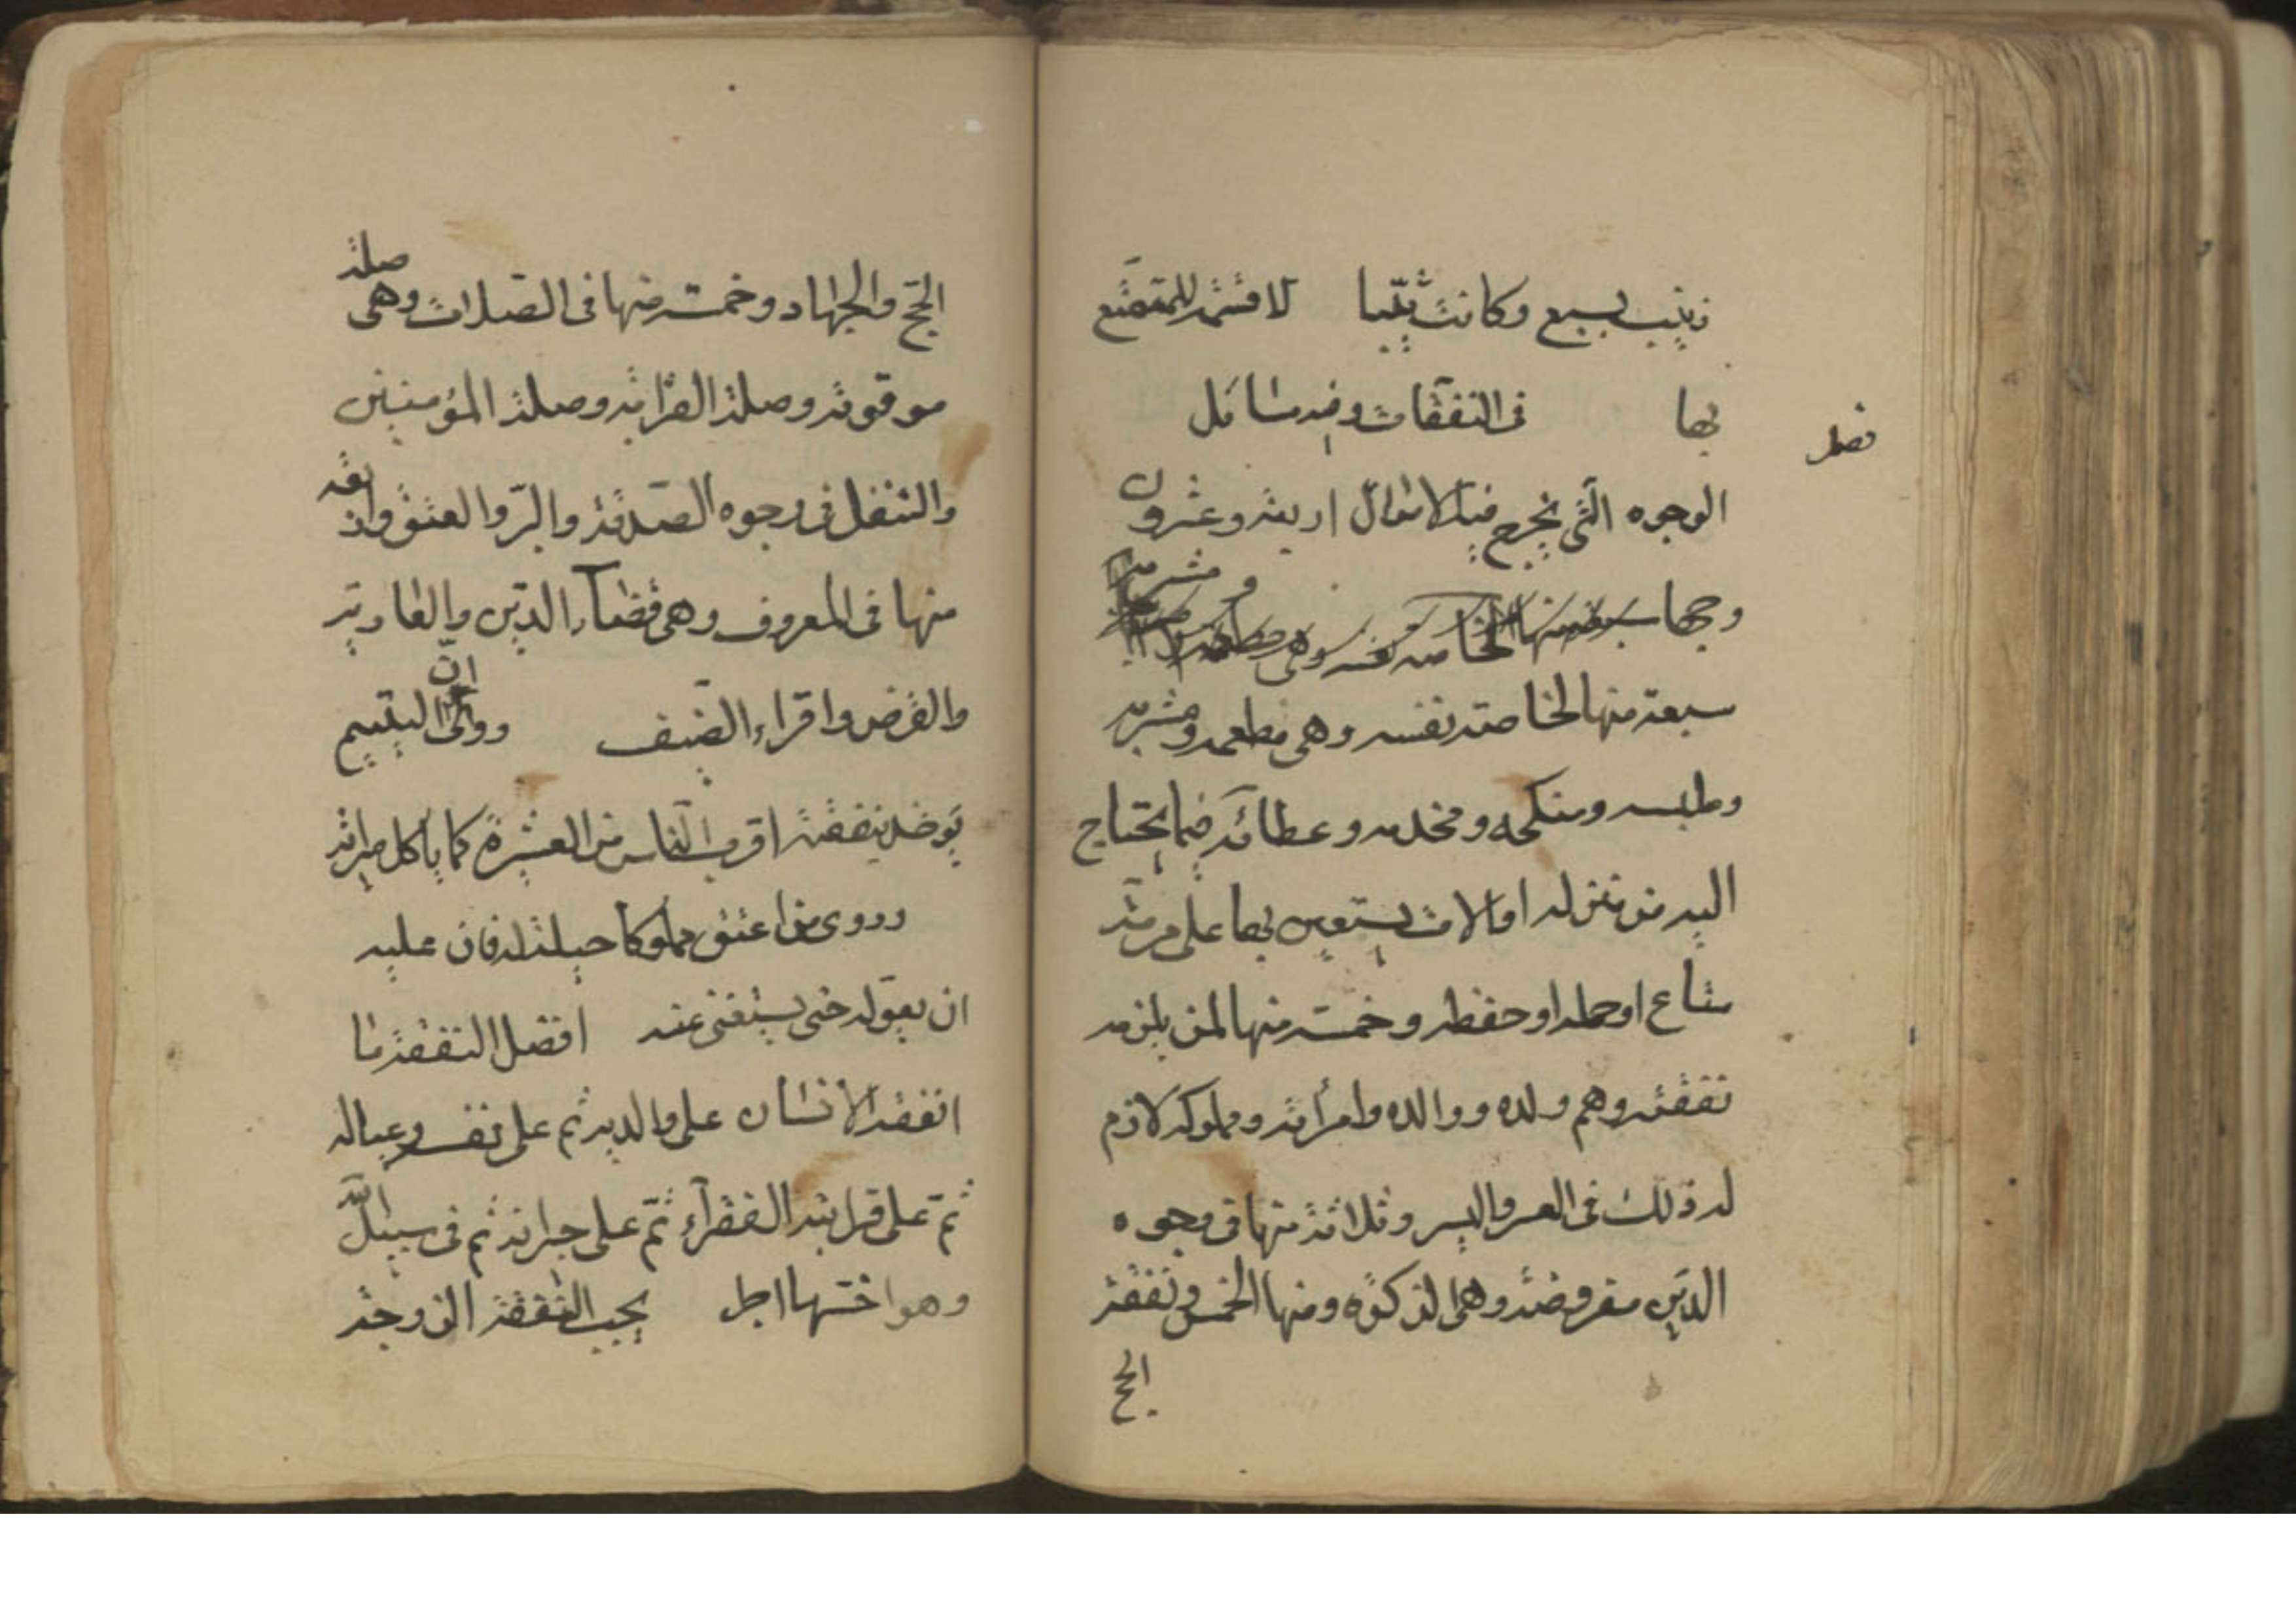 زينب بسبع وكانت ثيّبا لا قسمة للمتمتّع
بها في النفقات وفيه مسائل
فصل
الوجوه التي يخرج فيها الاموال اربعة وعشرون
وجها
سبعة منها لخاصة نفسه وهي مطعمه ومشربه
وملبسه ومنكحه ومخدمه وعطائه فيما يحتاج
اليه من منزله او الات يستعين بها على مرمة
متاع او حمله او حفظه وخمسة منها لمن يلزمه
نفقته وهم ولده ووالده وامرأته ومملوكه لازم
له ذلك في العسر واليسر وثلاثة منها في وجوه
الدين مفروضة وهي الزكوة ومنها الخمس ونفقة
الحج
الحجّ والجهاد وخمسة منها في الصلات وهي صلة
موقوته وصلة القرابة وصلة المؤمنين
والتنفل في وجوه الصدقة والبرّ والعتق واربعة
منها في المعروف وهي قضاء الدين والعارية
والقرض واقراء الضيف وروى انّ اليتيم
يؤخذ بنفقته اقرب الناس من العشيرة كما ياكل ميراثه
وروى من اعتق مملوكا حيلة له فان عليه
ان يعوله حتى يستغنى عنه افضل النفقة ما
انفقه الانسان على والديه ثم على نفسه وعياله
ثمّ على قرابته الفقرآء ثمّ على جيرانه ثم في سبيل اللّه
وهو اخسّها اجرا يجب النفقة الزوجة